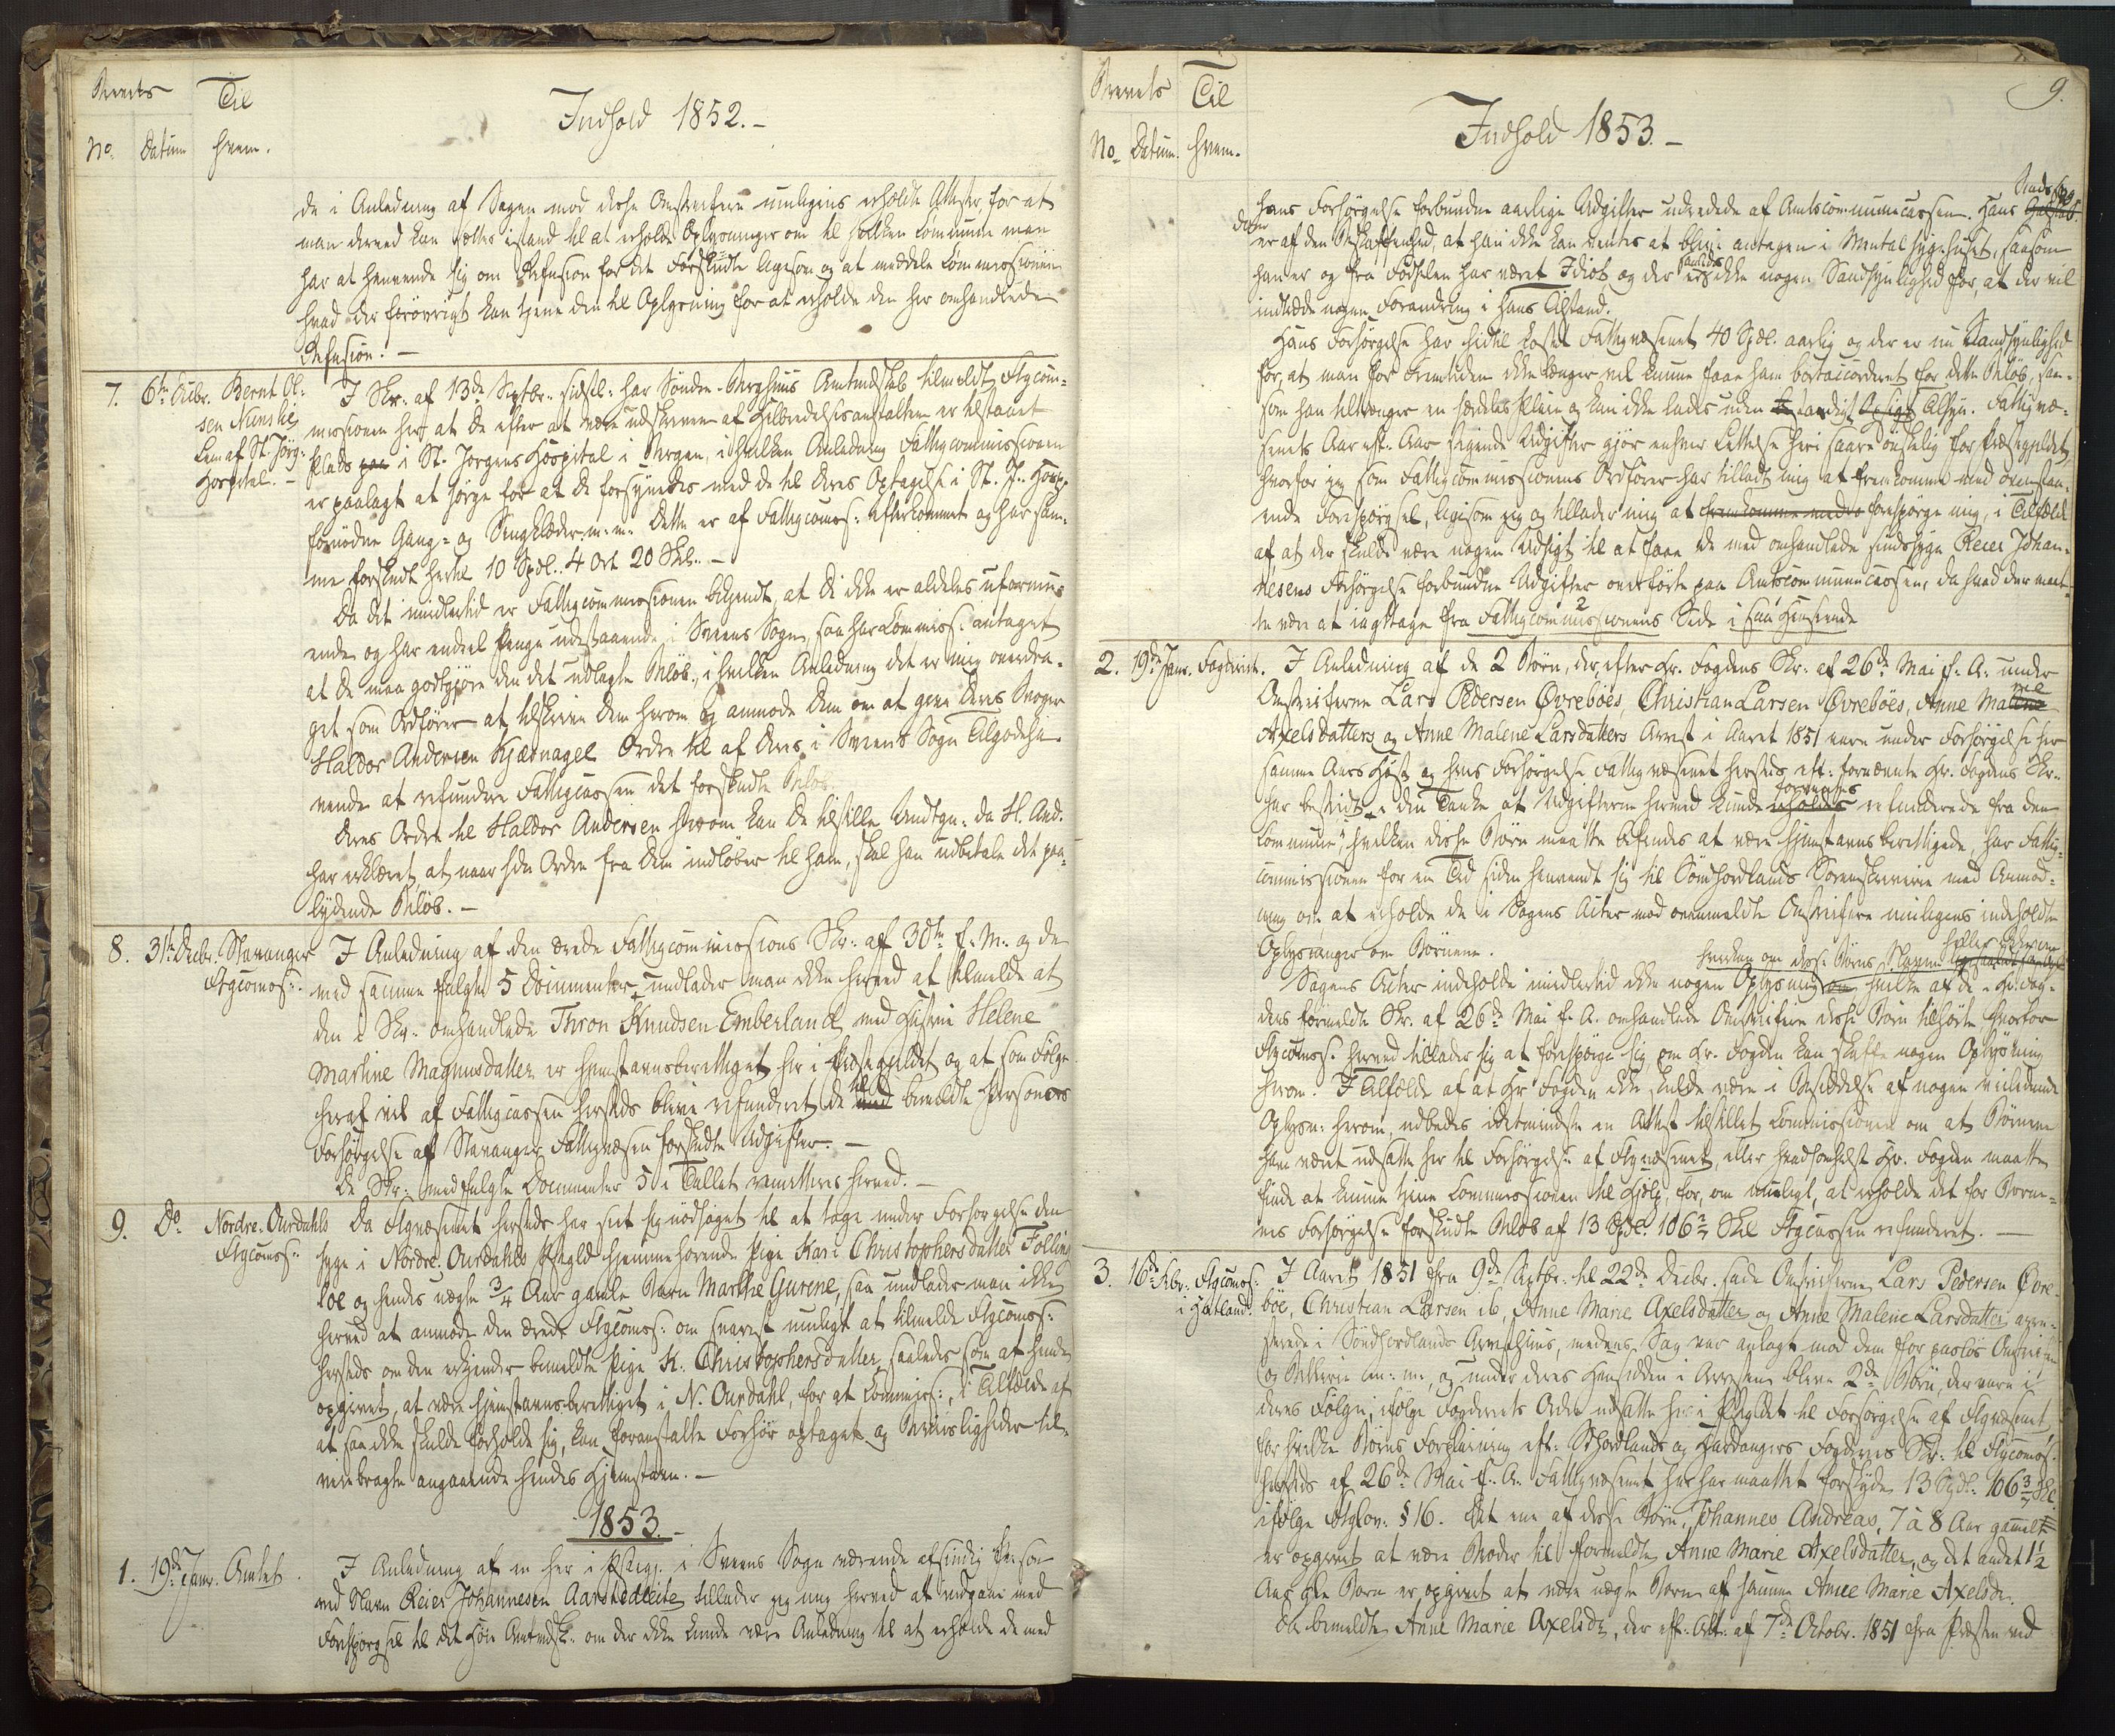 Brevets
Til
Indhold 1852.-
No. Datum hvem.
de i Anledning af Sagen mod disse Omstreifere muligens erholdte Attester for at
man derved kan sættes istand til at erholde Oplysninger om til hvilken Commune man
har at henvende sig om Refusion for det Forskudte ligesom og at meddele Commissionen
hvad der forøvrigt kan tjene den til Oplysning for at erholde den her omhandlede
Refusion. -
7. 6te Decbr. Bernt Ol-
sen Nunskes
Lem af St. Jørg.
Hospital. -
I Skr. af 13de Septbr. sidstl. har Søndre Berghuus Amtmdskab tilmeldt Ftgcom-
missionen her at De efter at være udskreven af Helbredelsesanstalten er tilstaaet
Plads paa i St. Jørgens Hospital i Bergen, i hvilken Anledning Fattigcommissionen
er paalagt at sørge for at De forsynedes med de til Deres Optagelse i St. J. Hosp.
fornødne Gang- og Sengklæder m. m. Dette er af Fattigcomss: efterkommet og har sam-
me forskudt hertil 10 Spdl. 4 Ort 20 Skl. -
Da det imidlertid er Fattigcommissionen bekjendt, at De ikke er aldeles uformu-
ende og har endeel Penge udestaaende i Sveens Sogn, saa har Commiss. antaget
at De maa godtgjøre den det udlagte Beløb, i hvilken Anledning det er mig overdra-
get som Ordfører at tilskrive Dem herom og anmode Dem om at give Deres Værge
Haldor Andersen Kjærnagel Ordre til af Deres i Sveens Sogn Tilgodeha-
vende at refundere Fattigcassen det forskudte Beløb.
Deres Ordre til Haldor Andersen herom kan De tilstille Undtgn. da H. And.
har erklæret, at naar sdn Ordre fra Dem indløber til ham, skal han udbetale det paa-
lydende Beløb. -
8. 31te Decbr. Stavanger
Ftgcomss:
I Anledning af den ærede Fattigcommissions Skr. af 30te f. M. og de
med samme fulgte 5 Documenter, undlader man ikke herved at tilmelde at
den i Skr. omhandlede Thron Knudsen Emberland med Hustrue Helene
Martine Magnusdatter er hjemstavnsberettiget her i Præstegjeldet og at som Følge
heraf vil af Fattigcassen hersteds blive refunderet de med til bemeldte Personers
Forsørgelse af Stavanger Fattigvæsen forskudte Udgifter. -
De Skr. medfulgte Documenter 5 i Tallet remitteres herved. -
9. Do. Nordre-Ourdahls
Ftgcomss:
Da Ftgvæsenet hersteds har seet sig nødsaget til at tage under Forsørgelse den
syge i Nordre-Ourdahls Præstegld hjemmehørende Pige Kari Christophersdatter Følling-
loe og hendes uægte 3/4 Aar gamle Barn Marthe Gurene, saa undlader man ikke
herved at anmode den ærede Ftgcomss: om snarest muligt at tilmelde Ftgcomss:
hersteds om den erkjender bemeldte Pige K. Christophersdatter, saaledes som af hende
opgivet, at være hjemstavnsberettiget i N. Ourdahl, for at Commiss:, i Tilfælde af
at saa ikke skulde forholde sig, kan foranstalte Forhør optaget og Beviisligheder til-
veiebragte angaaende hendes Hjemstavn. -
1853.-
1. 19de Janr. Amtet.
I Anledning af en her i Præstegj. i Sveens Sogn værende afsindig Person
ved Navn Reier Johannesen Aarskedleite tillader jeg mig herved at indgaae med
Forespørgsel til det Høie Amtmdsk. om der ikke kunde være Anledning til at erholde de med
9.
Brevets
Til
Indhold 1853.-
No. Datum. hvem.
hans Forsørgelse forbundne aarlige Udgifter udredede af Amtscommunecassen. Hans Galskab Sindssyg-
dom er af den Beskaffenhed, at han ikke kan ventes at blive antagen i Mentalsyg-huset, saasom
han er og fra Fødselen har været Idiot og der saaledes er ikke nogen Sandsynlighed for, at der vil
indtræde nogen Forandring i hans Tilstand.
Hans Forsørgelse har hidtil kostet Fattigvæsenet 40 Spdl. aarlig og der er nu Sandsynlighed
for, at man for Fremtiden ikke længer vil kunne faae ham bortaccorderet for dette Beløb, saa-
som han tiltrænger en særdeles Pleie og kan ikke lades uden stændigt Opsigt Tilsyn. Fattigvæ-
senets Aar eft. Aar stigende Udgifter gjør enhver Lettelse heri saare ønskelig for Præstegjeldet,
hvorfor jeg som Fattigcommissionens Ordfører har tilladt mig at fremkomme med ovenstaa-
ende Forespørgsel, ligesom jeg og tillader mig at fremkomme med forespørge mig, i Tilfælde
af at der skulde være nogen Udsigt til at faae de med omhandlede sindssyge Reier Johan-
nesens Forsørgelse forbundne Udgifter overførte paa Amtscommunecassen, da hvad der maat-
te være at iagttage fra Fattigcommissionens Side i saa Henseende
2. 19de Janr. Fogderiet.
I Anledning af de 2 Børn, der, efter Hr. Fogdens Skr. af 26de Mai f. A. under
Omstreiferne Lars Pedersen Øvrebøes, Christian Larsen Øvrebøes, Anne Marie
Axelsdatters og Anne Malene Larsdatters Arrest i Aaret 1851 vare under Forsørgelse her
samme Aars Høst og hvis Forsørgelse Fattigvæsenet hersteds, eft. fornævnte Hr. Fogdens Skr.
har bestridt, i den Tanke at Udgifterne herved kunde erholdes forventes refunderede fra den
Commune, hvilken disse Børn maatte befindes at være hjemstavnsberettigede, har Fattig-
commissionen for en Tid siden henvendt sig til Søndhordlands Sorenskriverie med Anmod-
ning om at erholde de i Sagens Acter mod ovenmeldte Omstreifere muligens indeholdte
Oplysninger om Børnene.
Sagens Acter indeholde imidlertid ikke nogen Oplysning hverken om disse Børns Navne eller om hvilke af de i Hr. Fog-
dens formeldte Skr. af 26de Mai f. A. omhandlede Omstreifere disse Børn tilhørte hvorfor
Ftgcomss. herved tillader sig at forespørge sig, om Hr. Fogden kan skaffe nogen Oplysning
herom. I Tilfælde af at Hr Fogden ikke skulde være i Besiddelse af nogen veiledende
Oplysn. herom, udbedes idetmindste en Attest tilstillet Commissionen om at Børnene
have været udsatte her til Forsørgelse af Ftgvæsenet, eller hvadsomhelst Hr. Fogden maatte
finde at kunne tjene Commissionen til Hjelp, for, om muligt, at erholde det for Børne-
nes Forsørgelse forskudte Beløb af 13 Spdl. 106 3/7 Skl Ftgcassen refunderet. -
3. 16de Febr. Ftgcomss:
i Hatland.
I Aaret 1851 fra 9de Septbr. til 22de Decbr. sade Omstreiferne Lars Pedersen Øvre-
bøe, Christian Larsen ib, Anne Marie Axelsdatter og Anne Malene Larsdatter arre-
sterede i Søndhordlands Arresthuus, medens Sag var anlagt mod dem for pasløs Omstreifen
og Betlerie m. m., og under deres Hensidden i Arresten bleve 2de Børn, der vare i
deres Følge, ifølge Fogderiets Ordre udsatte her i Præstegjeldet til Forsørgelse af Ftgvæsenet,
for hvilke Børns Forpleining eft. Sdhordlands og Hardangers Fogderies Skr. til Ftgcomss.
hersteds af 26de Mai f. A. Fattigvæsenet her har maattet forskyde 13 Spdl. 106 3/7 Skl.
ifølge Ftglov. § 16. Det ene af disse Børn, Johannes Andreas, 7 à 8 Aar gammelt
er opgivet at være Broder til formeldte Anne Marie Axelsdatter, og det andet 1 1/2
Aar gle Barn er opgivet at være uægte Barn af samme Anne Marie Axelsdr.
Da bemeldte Anne Marie Axelsdr, der eft. Att. af 7de Octobr. 1851 fra Præsten ved